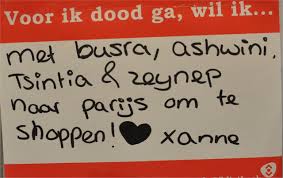 Voor ik dood ga, wil ik...
met busra, ashwini,
Tsintia & zeynep
naar parijs om te
shoppen! ♥ xanne